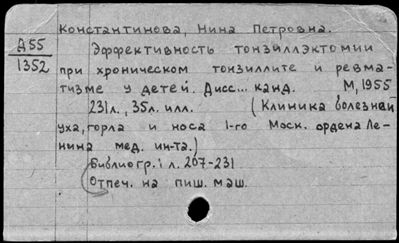 Константинова, Нина Петровна.
Д55
1352
Эффективность тонзиллэктомии
при хроническом тонзиллите и ревма-
тизме у детей. Дисс... канд. М, 1955
231л., 35л. илл. (Клиника болезней
уха, горла и носа 1-го Моск. ордена Ле-
нина мед. ин-та.)
Библиогр.: л. 207-231
Отпеч. на пиш. маш.